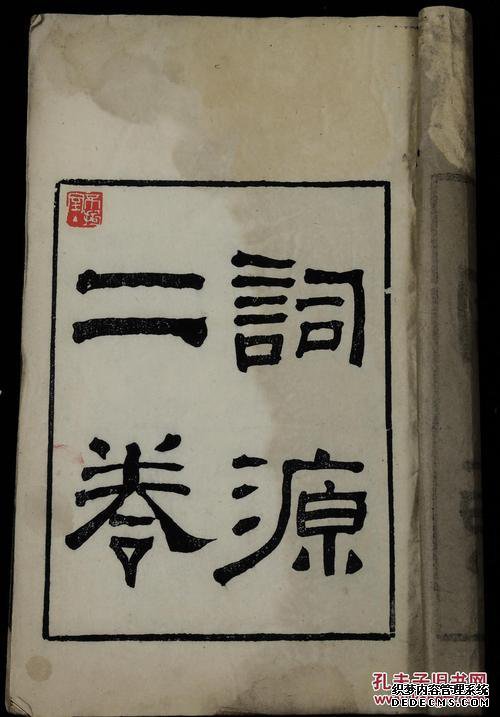 詞源
二卷
孔夫子旧书网
织梦内容管理系统
DEDECMS.COM